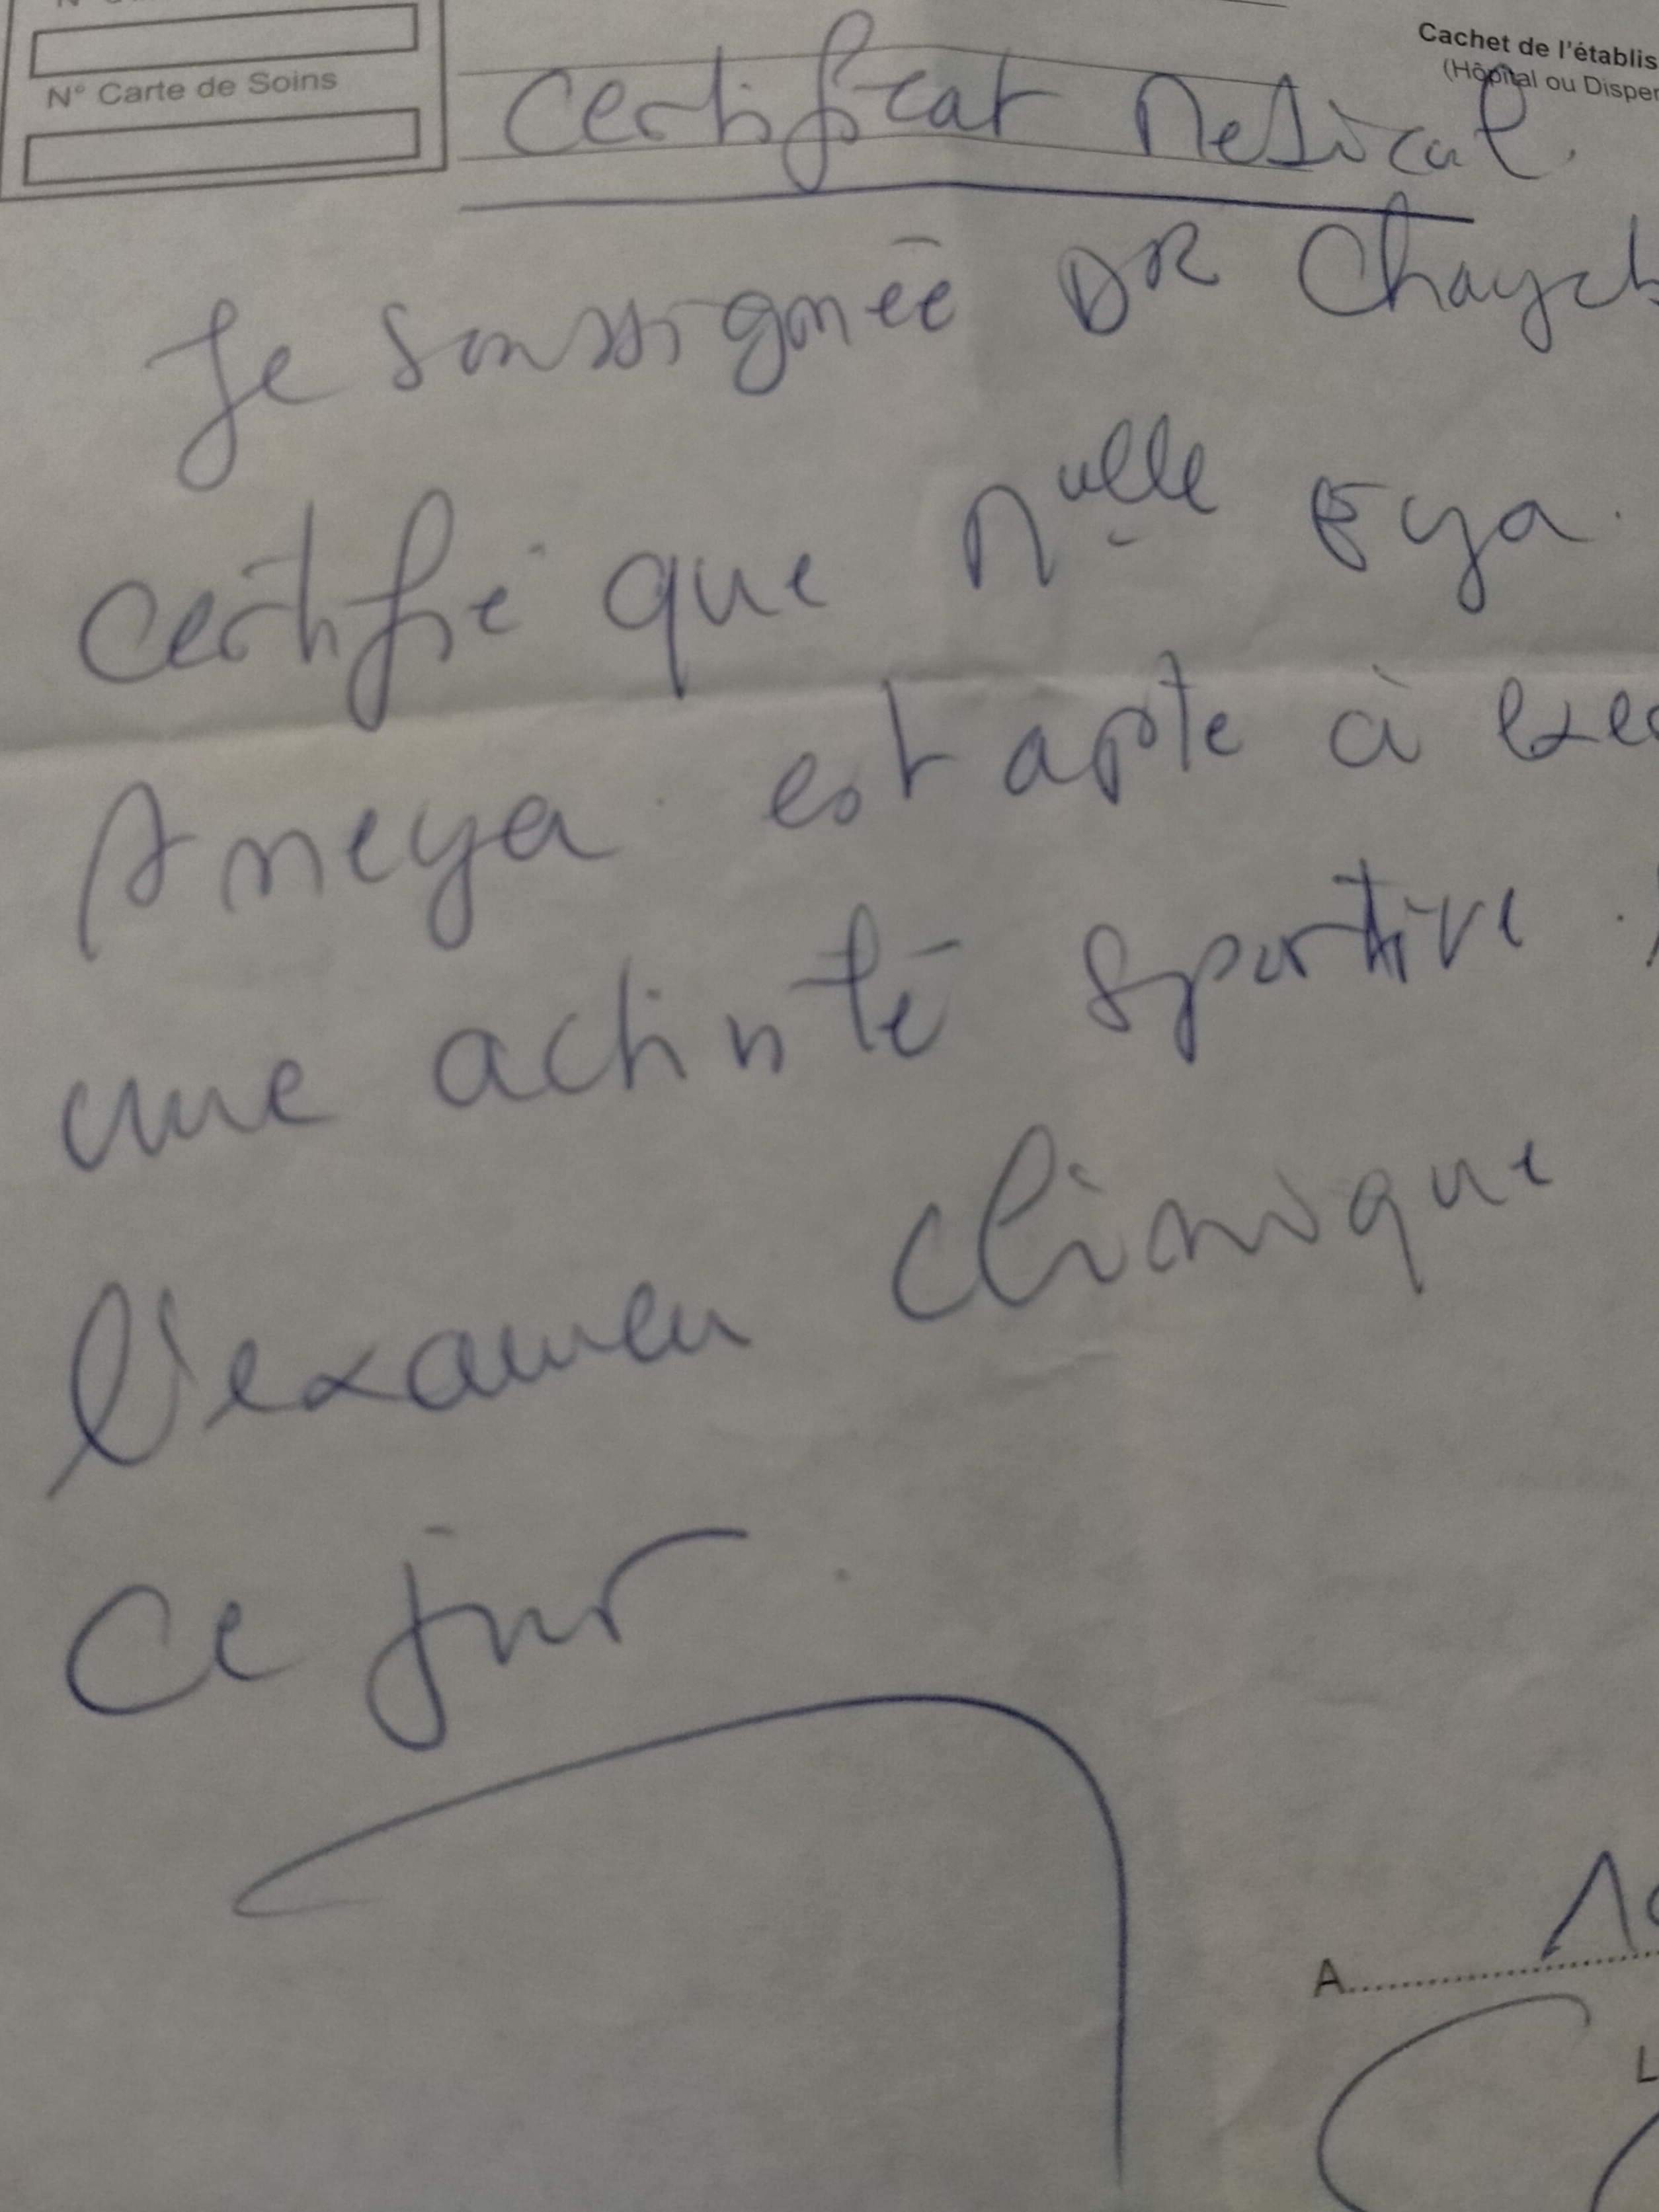 N° Carte de Soins
Cachet de l'établis
(Hôpital ou Disper
Certificat Medical.
Je soussignée DR Chayeb
certifie que Mlle Eya
Ameya est apte à exe
une activité sportive.
l'examen clinique
Ce jour
A
L